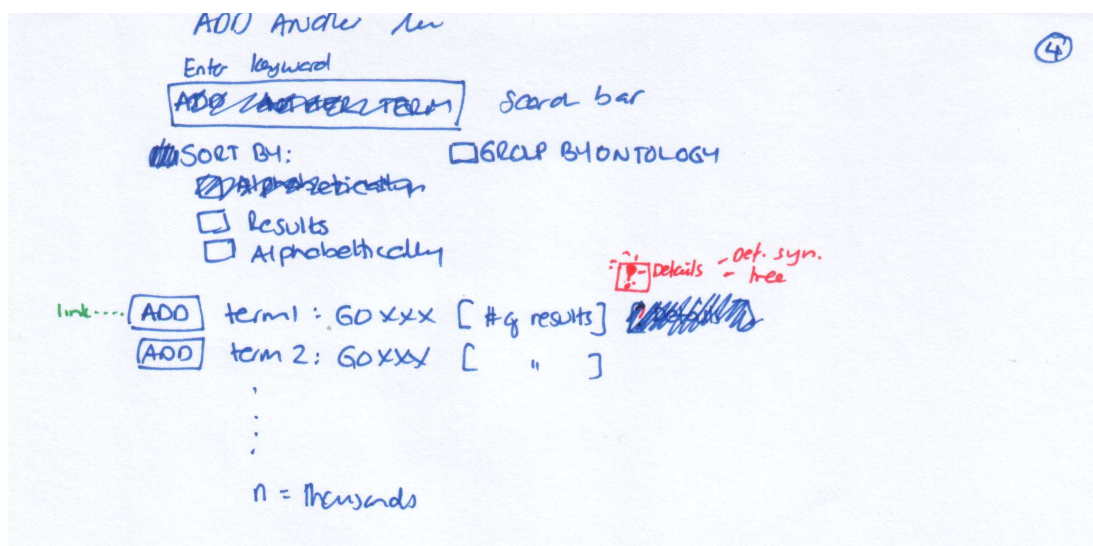 ADD Another
Enter keyword
ADD ANOTHER TERM Search bar
SORT BY: GROUP BY ONTOLOGY
Alphabetically
Results
Alphabeltically
Details - Def. syn.
- tree
link.... ADD term1 : GO XXX [ # of results] Details
ADD term 2 : GO XXX [ " ]
n = thousands
4